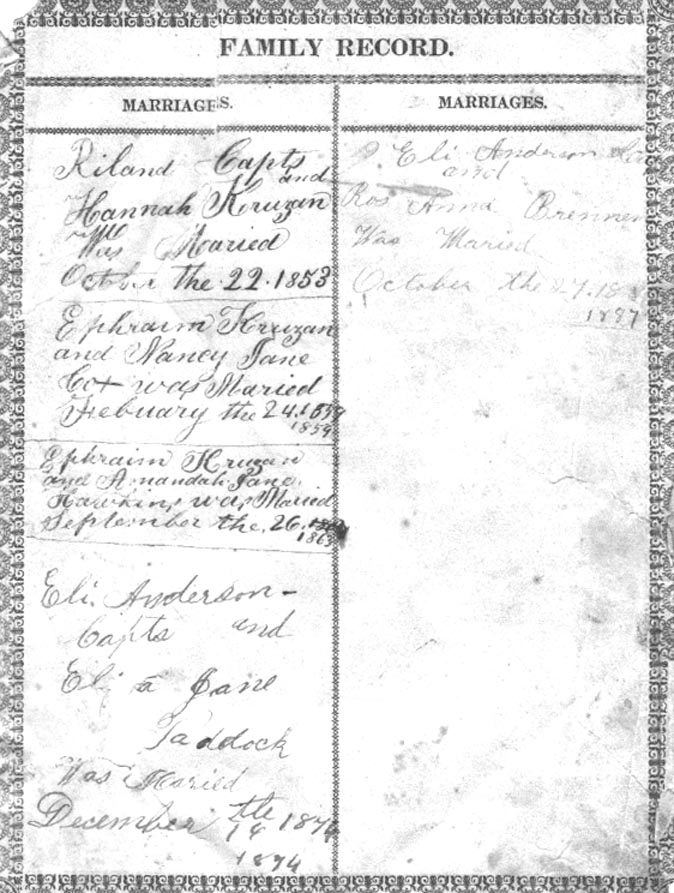 FAMILY RECORD.
MARRIAGES.
Riland Capts
and
Hannah Kruzan
Was Maried
October the 22. 1853
Ephraim Kruzan
and Nancy Jane
Cox was Maried
Febuary the 24. 1859
1859
Ephraim Kruzan
and Amandah Jane
Hawkins was Maried
September the 26.
1863
Eli Anderson-
Capts and
Eliza Jane
Paddock
Was Maried
December the
18 1874
1874
MARRIAGES.
Eli Anderson
and
Ros Anna Brennen
Was Maried
October the 27.
1887